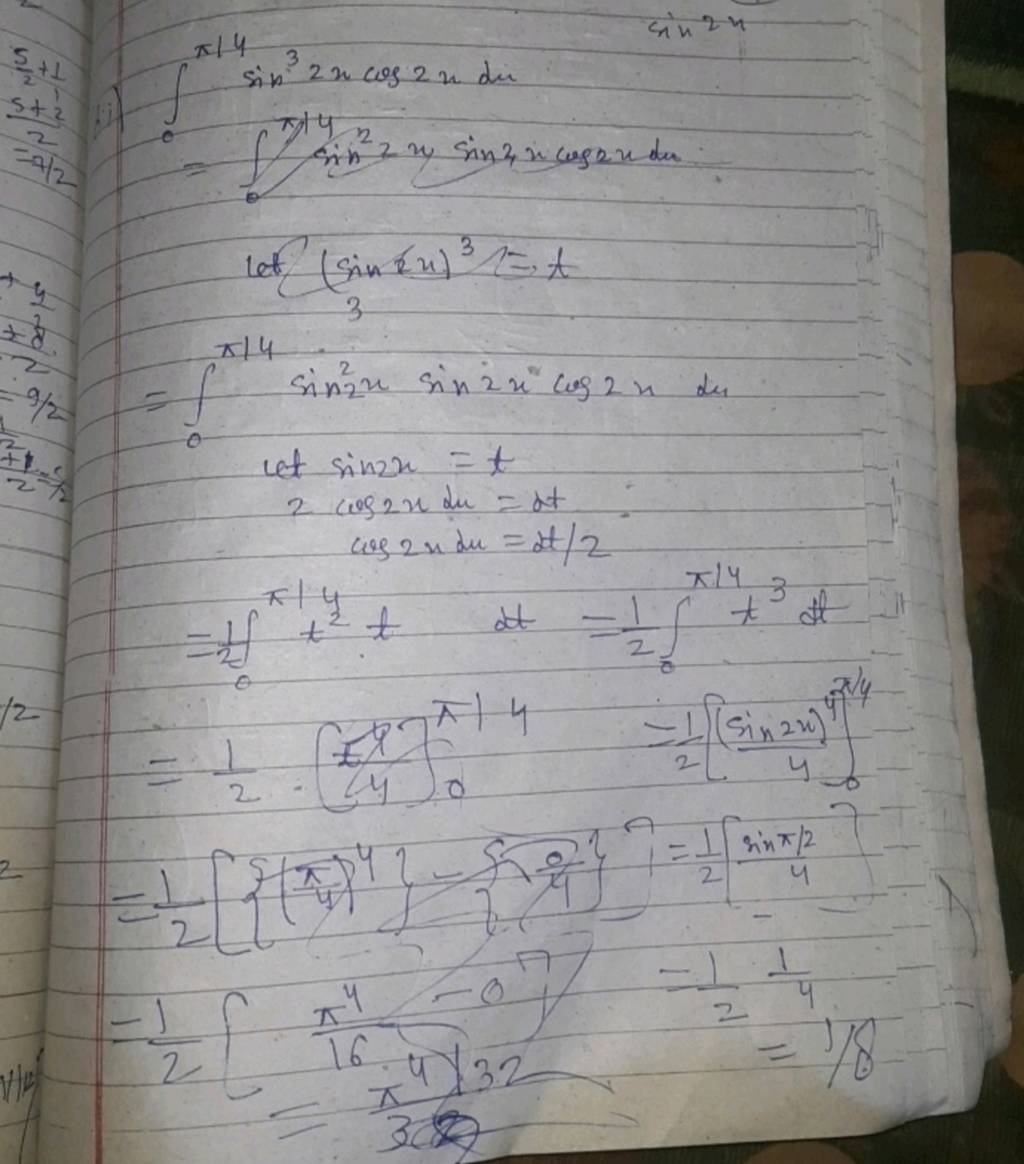 sin 2x
5/2 + 1
= 9/2
ii) ∫₀^(π/4) sin³ 2x cos 2x dx
= ∫₀^(π/4) sin² 2x sin 2x cos 2x dx
Let (sin 2x)³ = t
3
= ∫₀^(π/4) sin² 2x sin 2x cos 2x dx
Let sin2x = t
2 cos 2x dx = dt
cos 2x dx = dt/2
= 1/2 ∫₀^(π/4) t² t dt = 1/2 ∫₀^(π/4) t³ dt
= 1/2 · [t⁴/4]₀^(π/4) = 1/2 [(sin 2x)⁴/4]₀^(π/4)
= 1/2 [{(π/4)⁴} - {0/4}] = 1/2 [sin π/2 / 4]
= 1/2 [π⁴/16 - 0] = 1/2 1/4
= π⁴/32 = 1/8